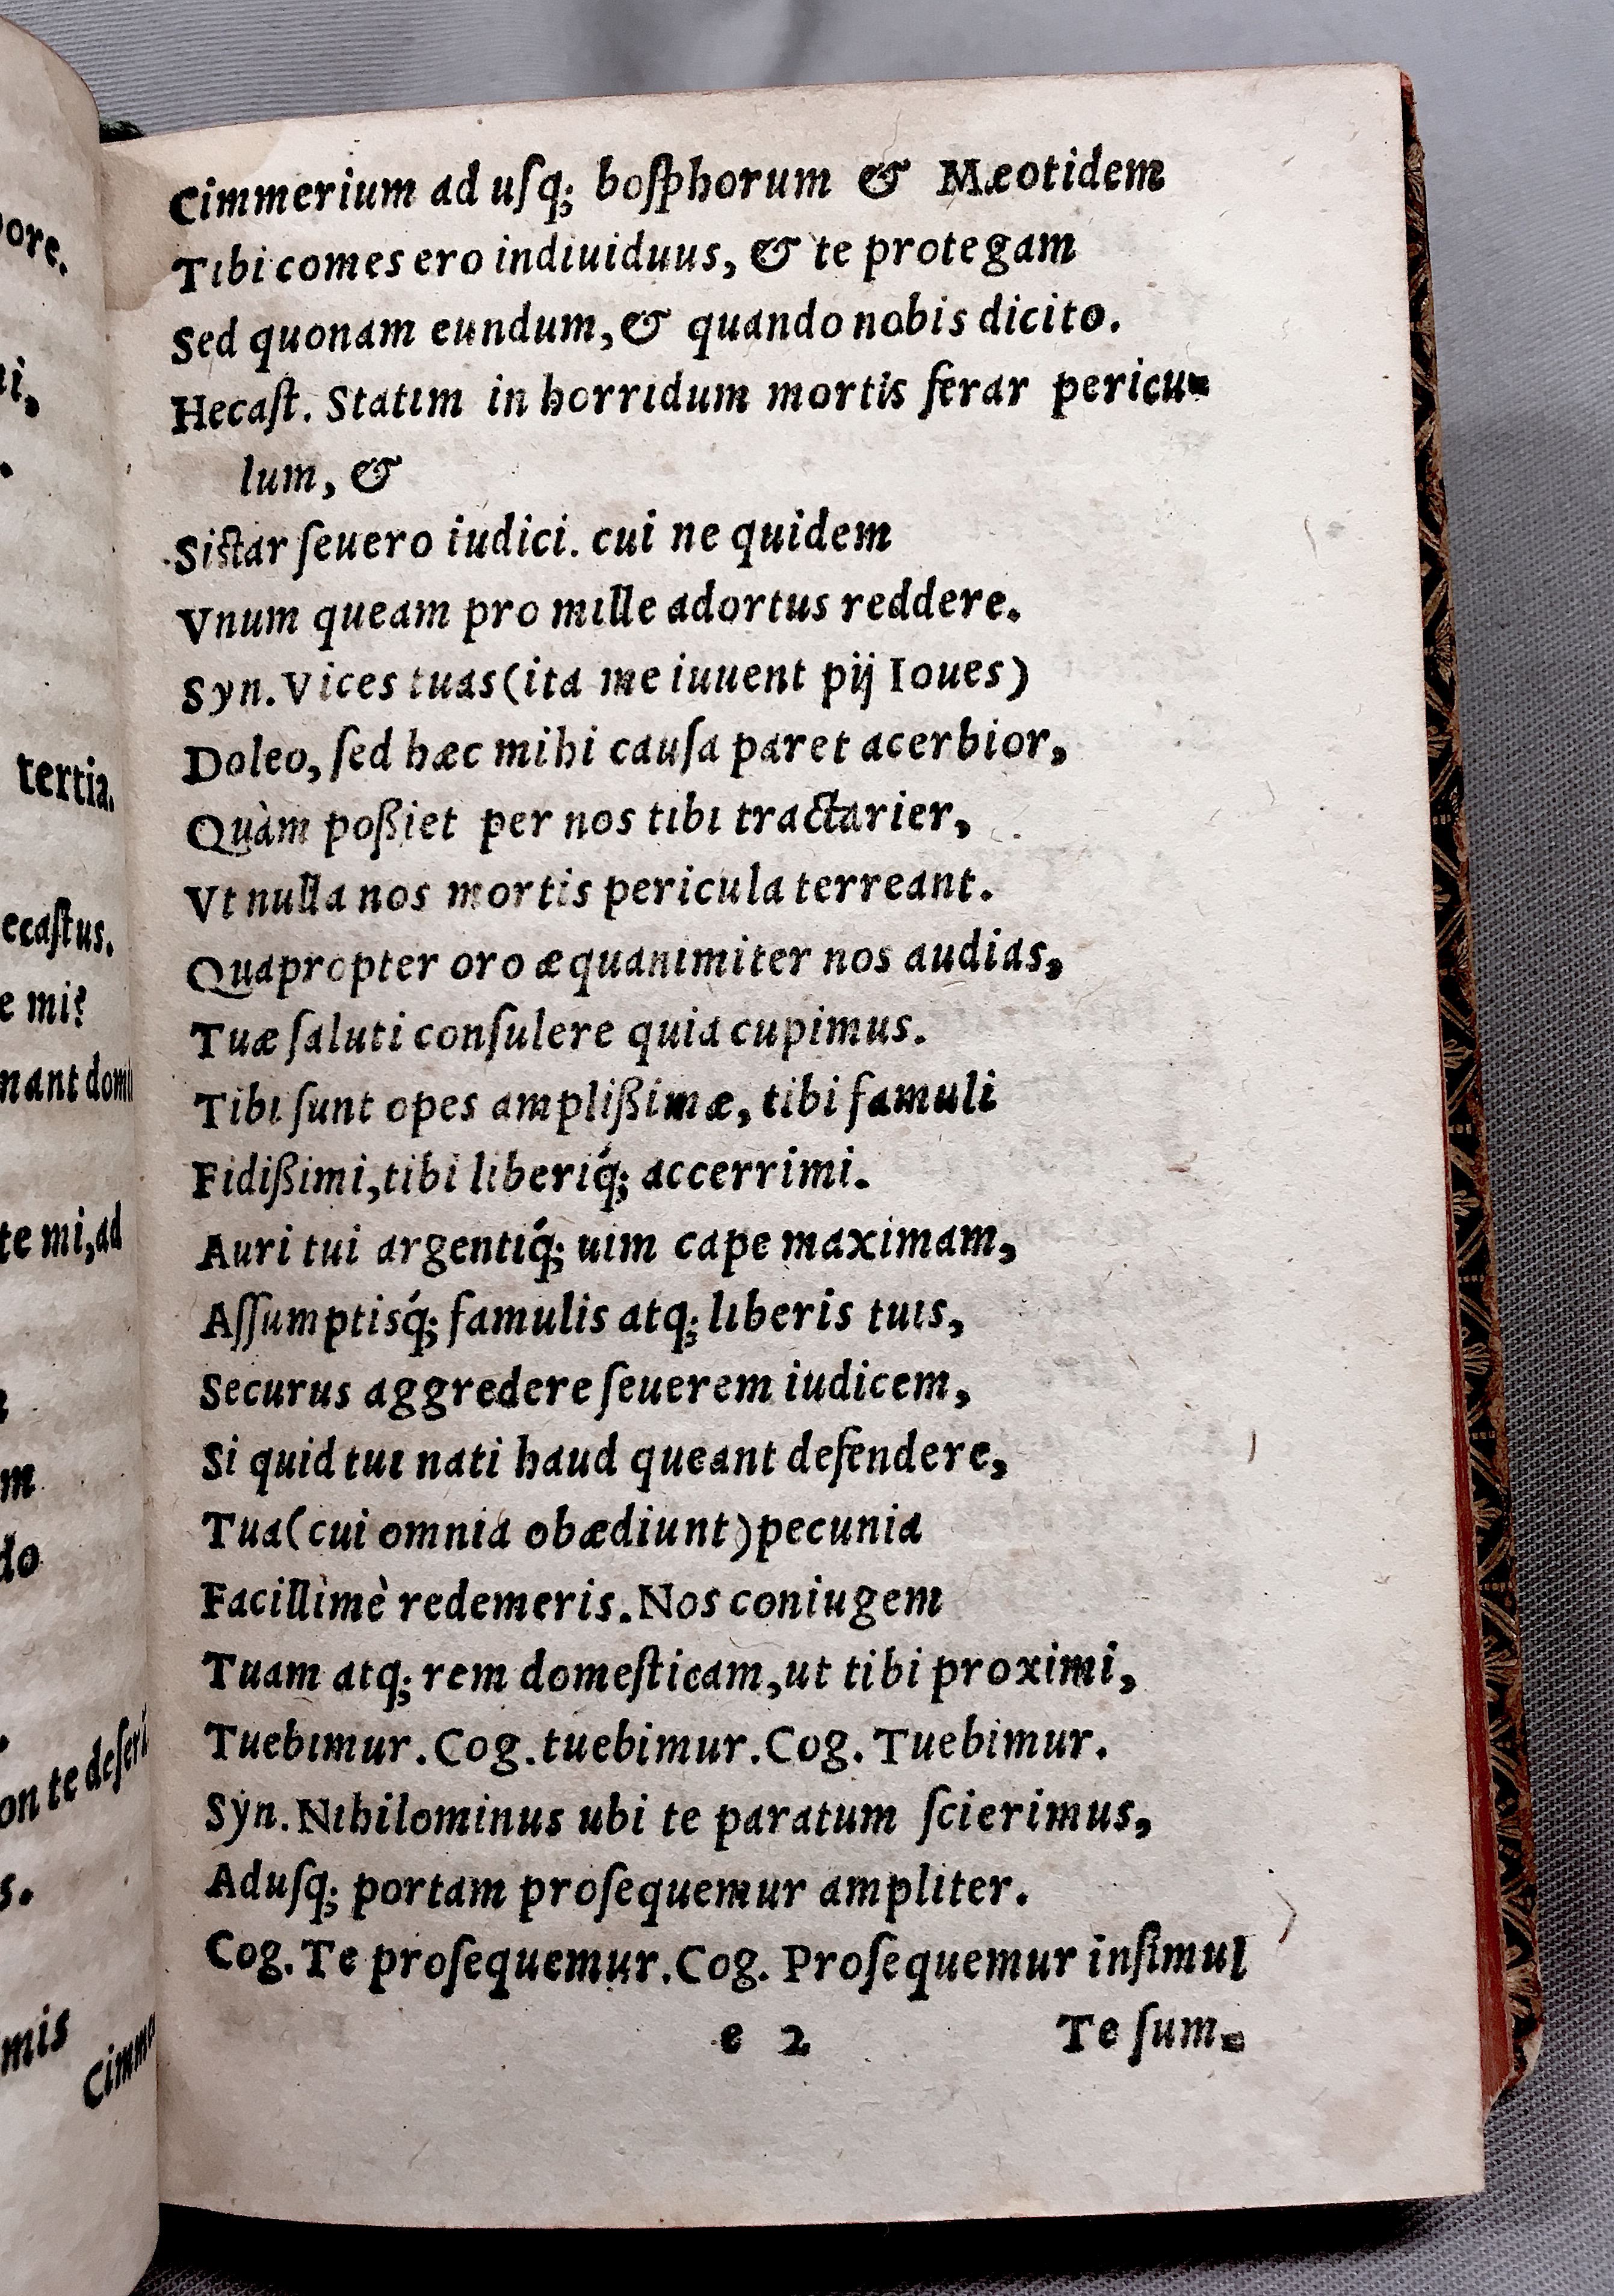 pore.
tertia.
ecaſtus.
e mi?
nant domi
te mi, ad
do
on te deſeri
mis
Cimme
Cimmerium ad uſq; boſphorum & Mæotidem
Tibi comes ero indiuiduus, & te protegam
Sed quonam eundum, & quando nobis dicito.
Hecaſt. Statim in horridum mortis ferar pericu-
lum, &
Siſtar ſeuero iudici. cui ne quidem
Vnum queam pro mille adortus reddere.
Syn. Vices tuas (ita me iuuent pij Ioues)
Doleo, ſed hæc mihi cauſa paret acerbior,
Quàm poßiet per nos tibi tractarier,
Vt nulla nos mortis pericula terreant.
Quapropter oro æquanimiter nos audias,
Tuæ ſaluti conſulere quia cupimus.
Tibi ſunt opes amplißimæ, tibi famuli
Fidißimi, tibi liberiq́; accerrimi.
Auri tui argentiq́; uim cape maximam,
Aſſumptisq́; famulis atq; liberis tuis,
Securus aggredere ſeuerem iudicem,
Si quid tui nati haud queant defendere,
Tua (cui omnia obædiunt) pecunia
Facillimè redemeris. Nos coniugem
Tuam atq; rem domeſticam, ut tibi proximi,
Tuebimur. Cog. tuebimur. Cog. Tuebimur.
Syn. Nihilominus ubi te paratum ſcierimus,
Aduſq; portam proſequemur ampliter.
Cog. Te proſequemur. Cog. Proſequemur inſimul
e 2 Te ſum-